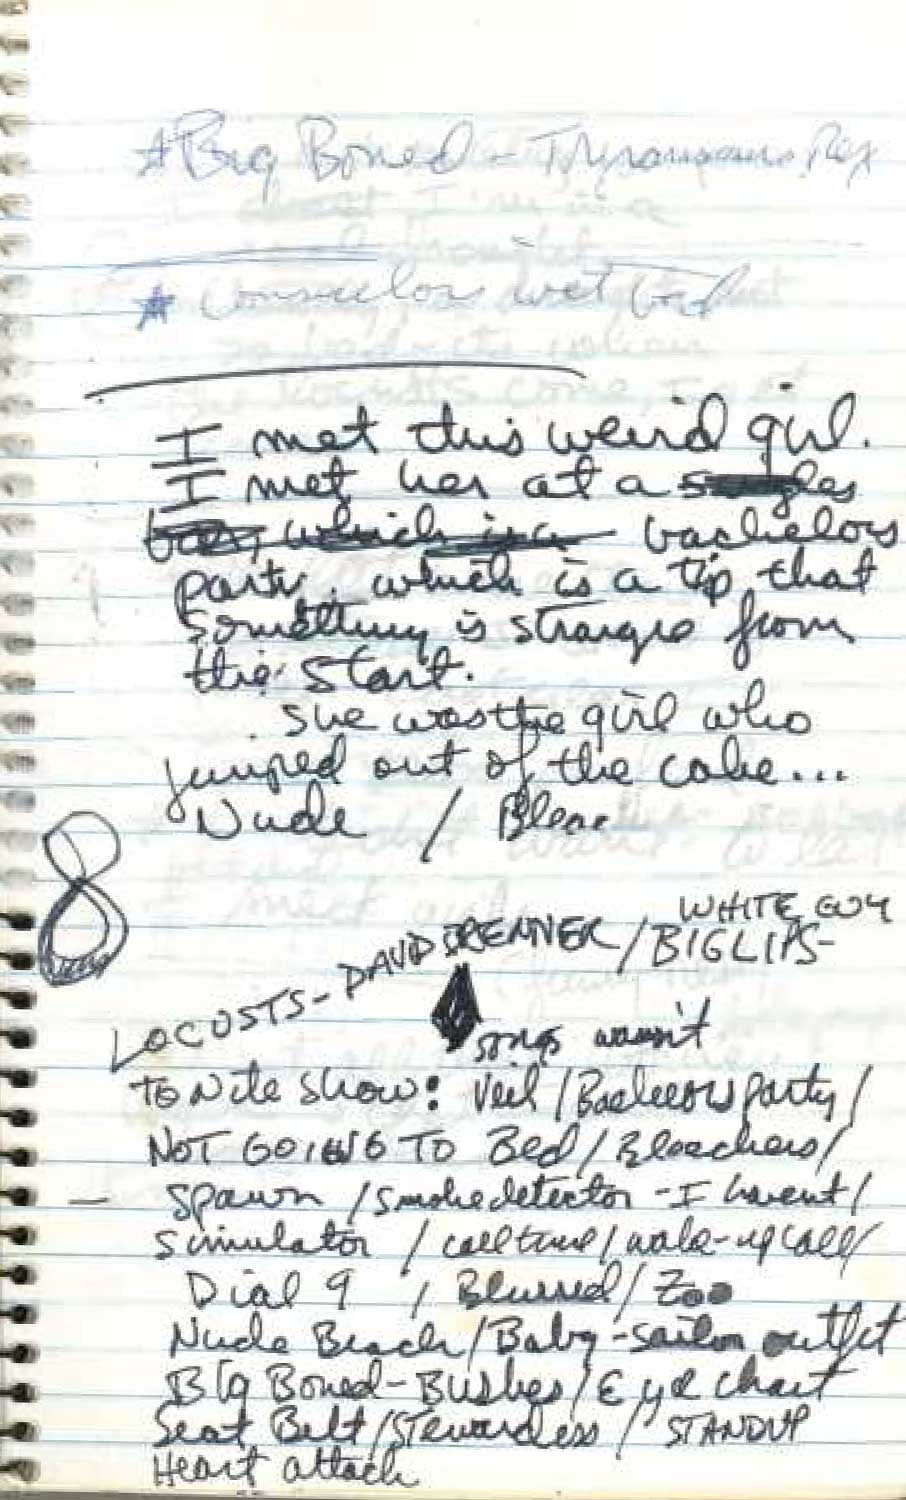 ☆ Big Boned - Tyranosaurus Rex
☆ Counselor wet bed
I met this weird girl.
I met her at a singles
bar, which is a bachelors
party, which is a tip that
something is strange from
the start.
She was the girl who
jumped out of the cake...
Nude / Bleac
8
WHITE GUY
LOCUSTS - DAVID BRENNER / BIG LIPS -
songs wasn't
TONite Show: Veil / Bachelors party /
NOT GOING TO Bed / Bleachers /
- Spawn / Smoke detector - I havent /
Simulator / call time / wake-up call /
Dial 9 / Blurred / Zoo
Nude Beach / Baby - sailor outfit
Big Boned - Bushes / Eye chart
Seat Belt / Stewardess / STANDUP
Heart attack